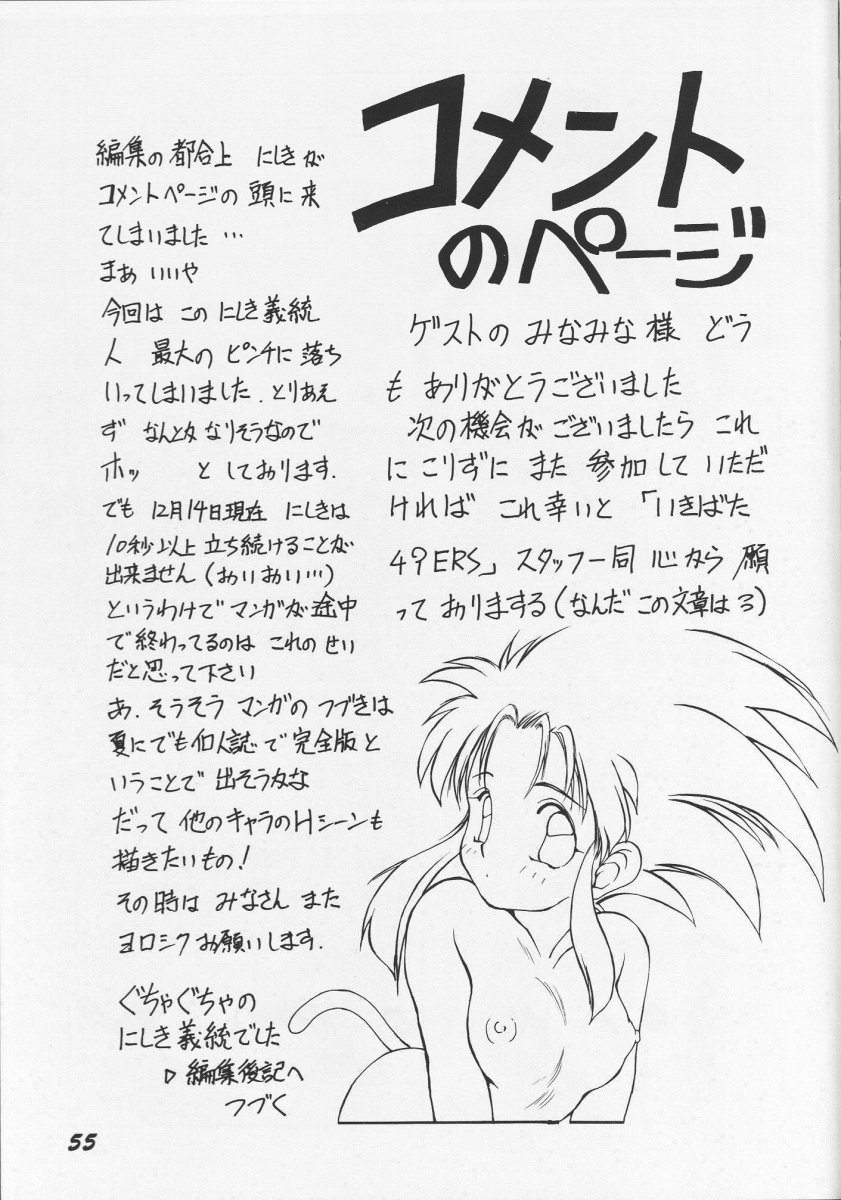 コメント
のページ
編集の都合上 にしきが
コメントページの 頭に来
てしまいました …
まぁ いいや
今回は この にしき義統
人 最大の ピンチに 落ち
いってしまいました. とりあえ
ず なんとか なりそうなので
ホッ と しております.
でも 12月14日現在 にしきは
10秒以上 立ち続けることが
出来ません (おいおい…)
というわけで マンガが 途中
で 終わってるのは これの せい
だと思って下さい
あ. そうそう マンガの つづきは
夏にでも 個人誌で 完全版と
いうことで 出そうかな
だって 他のキャラのHシーンも
描きたいもの!
その時は みなさん また
ヨロシク お願いします.
ぐちゃぐちゃの
にしき義統でした
▷ 編集後記へ
つづく
ゲストの みなみな様 どう
も ありがとうございました
次の機会が ございましたら これ
に こりずに また 参加して いただ
ければ これ幸いと 「いきばた
49ERS」 スタッフ一同 心から 願
って おりまする (なんだ この文章は3)
55